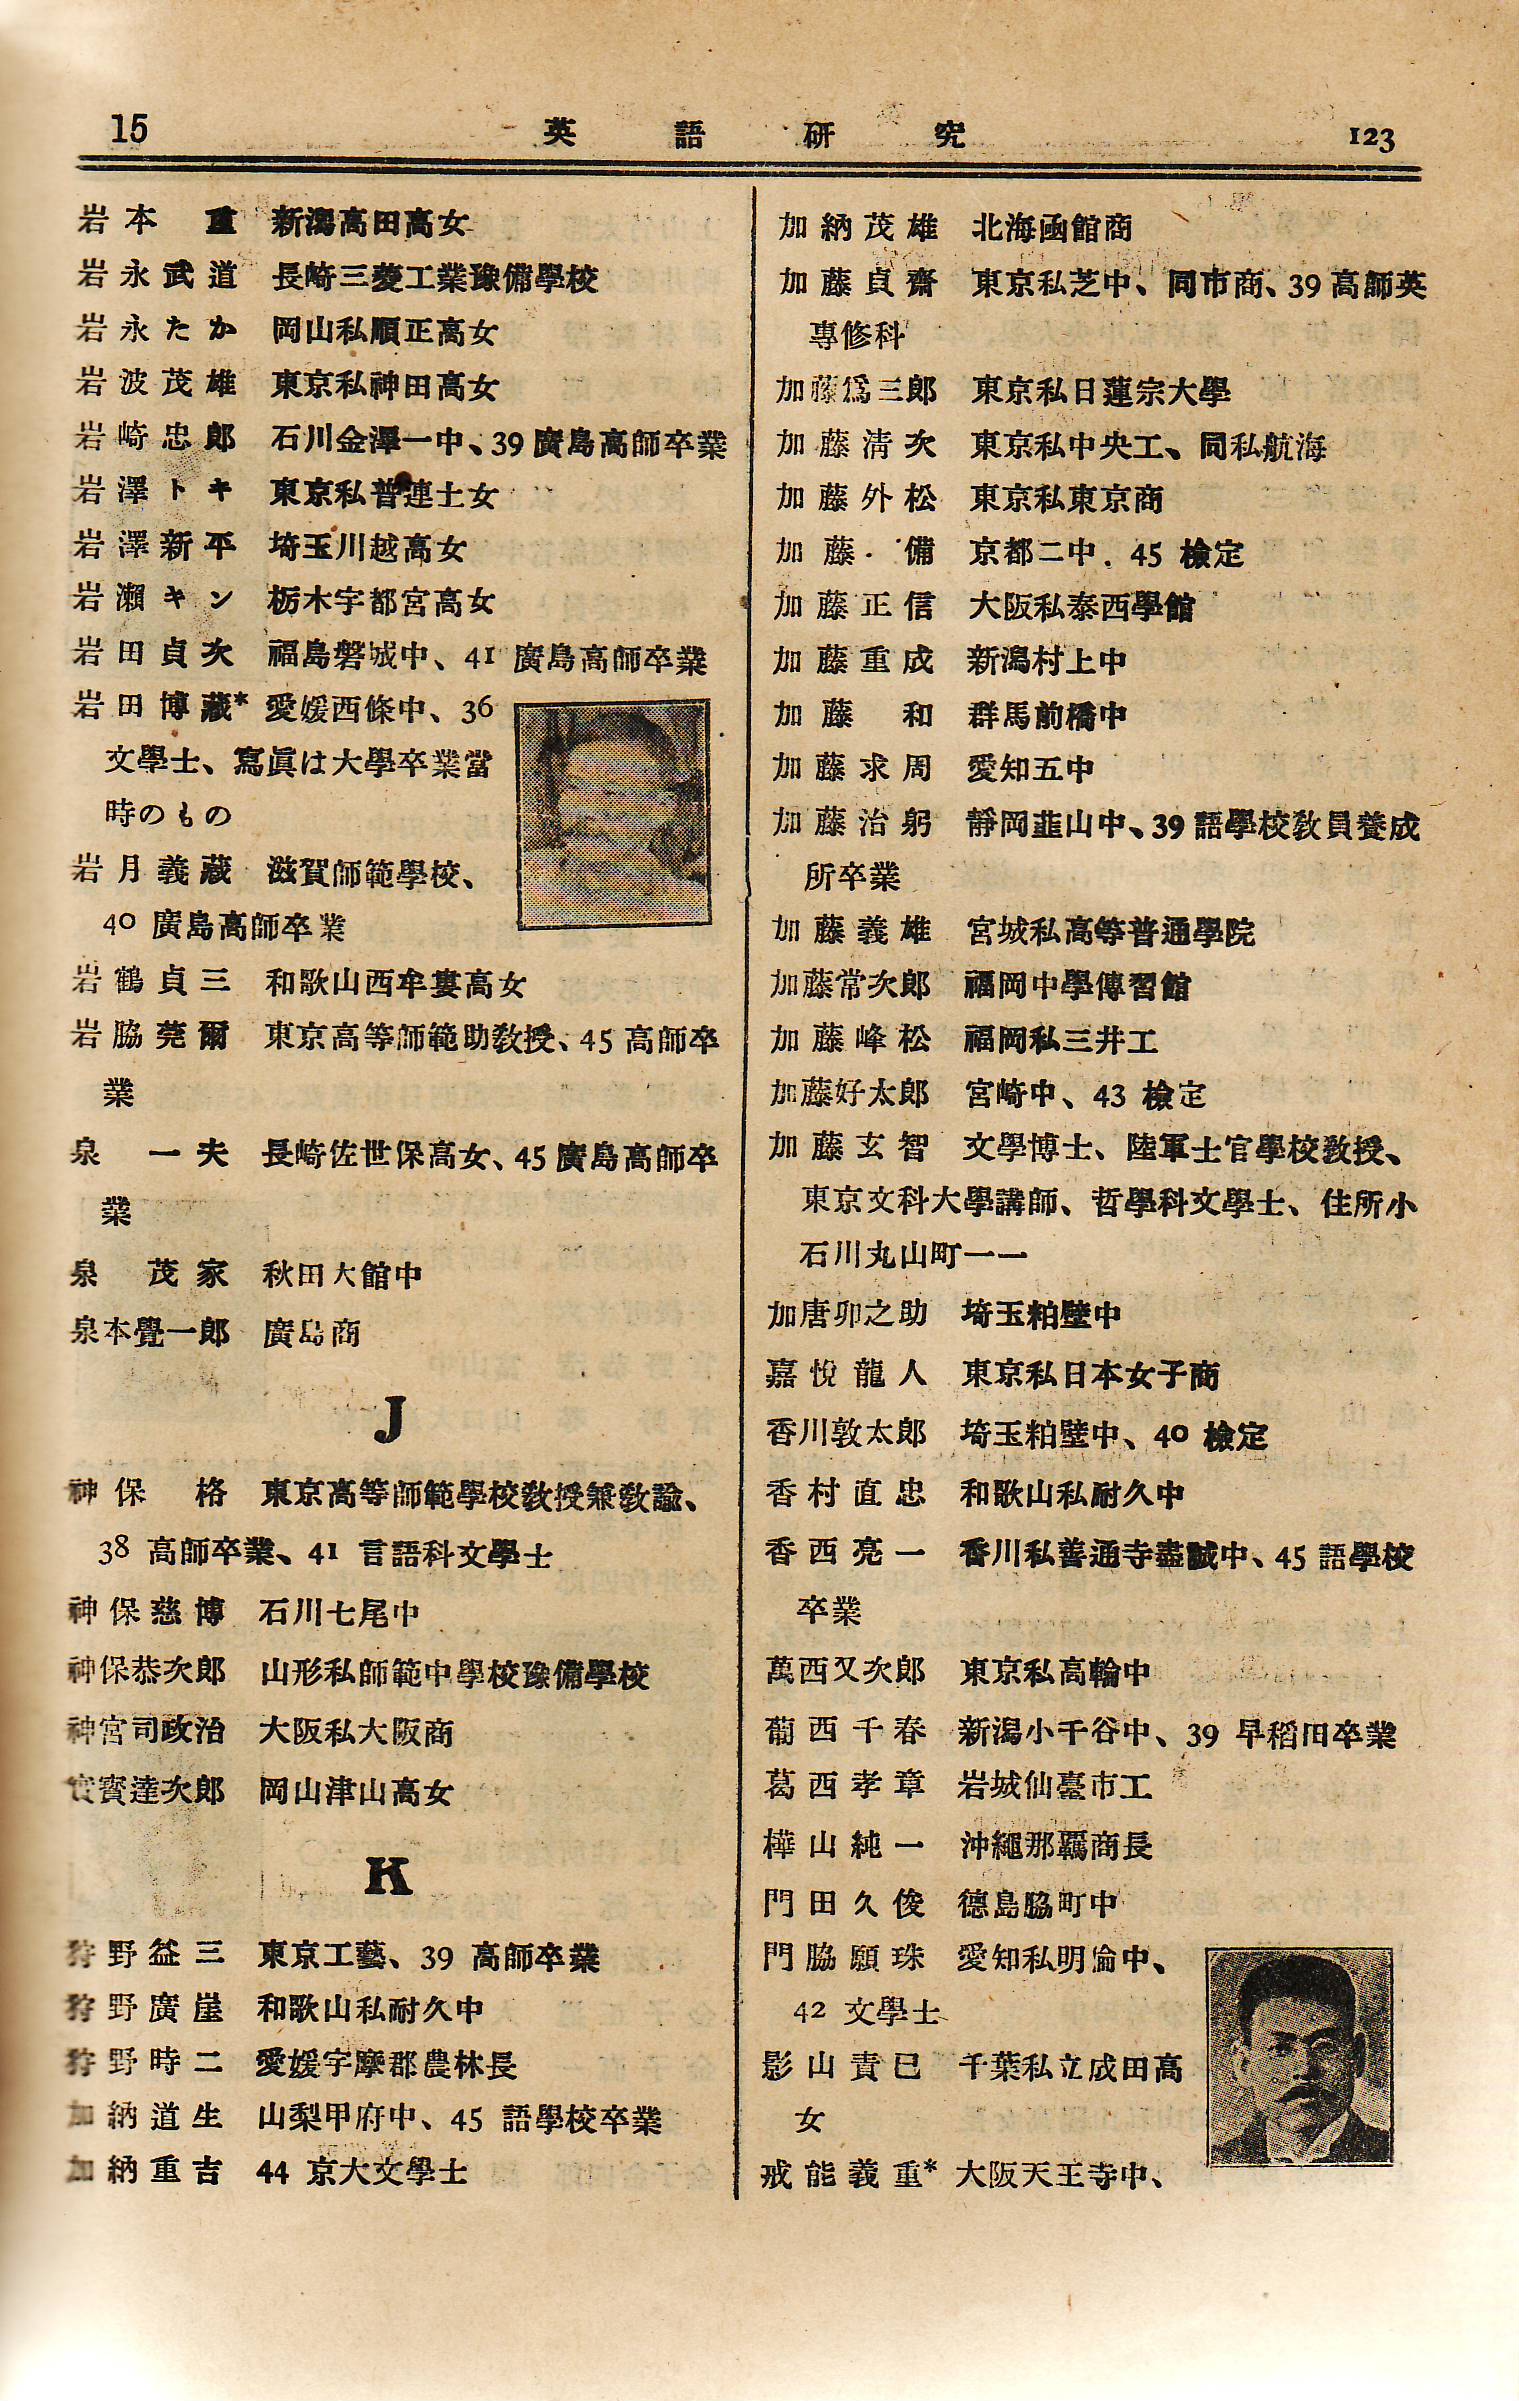 15 英語研究 123
岩本 重 新潟高田高女
岩永武道 長崎三菱工業豫備學校
岩永たか 岡山私順正高女
岩波茂雄 東京私神田高女
岩崎忠郎 石川金澤一中、39廣島高師卒業
岩澤トキ 東京私普連土女
岩澤新平 埼玉川越高女
岩瀨キン 栃木宇都宮高女
岩田貞次 福島磐城中、41 廣島高師卒業
岩田博藏* 愛媛西條中、36
文學士、寫眞は大學卒業當
時のもの
岩月義藏 滋賀師範學校、
40 廣島高師卒業
岩鶴貞三 和歌山西牟婁高女
岩脇莞爾 東京高等師範助敎授、45 高師卒
業
泉 一夫 長崎佐世保高女、45廣島高師卒
業
泉 茂家 秋田大館中
泉本覺一郎 廣島商
J
神保 格 東京高等師範學校敎授兼敎諭、
38 高師卒業、41 言語科文學士
神保慈博 石川七尾中
神保恭次郎 山形私師範中學校豫備學校
神宮司政治 大阪私大阪商
實寳達次郎 岡山津山高女
K
狩野益三 東京工藝、39 高師卒業
狩野廣崖 和歌山私耐久中
狩野時二 愛媛宇摩郡農林長
加納道生 山梨甲府中、45 語學校卒業
加納重吉 44 京大文學士
加納茂雄 北海函館商
加藤貞齋 東京私芝中、同市商、39高師英
專修科
加藤爲三郎 東京私日蓮宗大學
加藤淸次 東京私中央工、同私航海
加藤外松 東京私東京商
加藤 備 京都二中. 45 檢定
加藤正信 大阪私泰西學館
加藤重成 新潟村上中
加藤 和 群馬前橋中
加藤求周 愛知五中
加藤治躬 靜岡韮山中、39語學校敎員養成
所卒業
加藤義雄 宮城私高等普通學院
加藤常次郎 福岡中學傳習館
加藤峰松 福岡私三井工
加藤好太郎 宮崎中、43 檢定
加藤玄智 文學博士、陸軍士官學校敎授、
東京文科大學講師、哲學科文學士、住所小
石川丸山町一一
加唐卯之助 埼玉粕壁中
嘉悅龍人 東京私日本女子商
香川敦太郎 埼玉粕壁中、40 檢定
香村直忠 和歌山私耐久中
香西亮一 香川私善通寺盡誠中、45 語學校
卒業
萬西又次郎 東京私高輪中
葡西千春 新潟小千谷中、39 早稻田卒業
葛西孝章 岩城仙臺市工
樺山純一 沖繩那覇商長
門田久俊 德島脇町中
門脇願珠 愛知私明倫中、
42 文學士
影山責巳 千葉私立成田高
女
戒能義重* 大阪天王寺中、